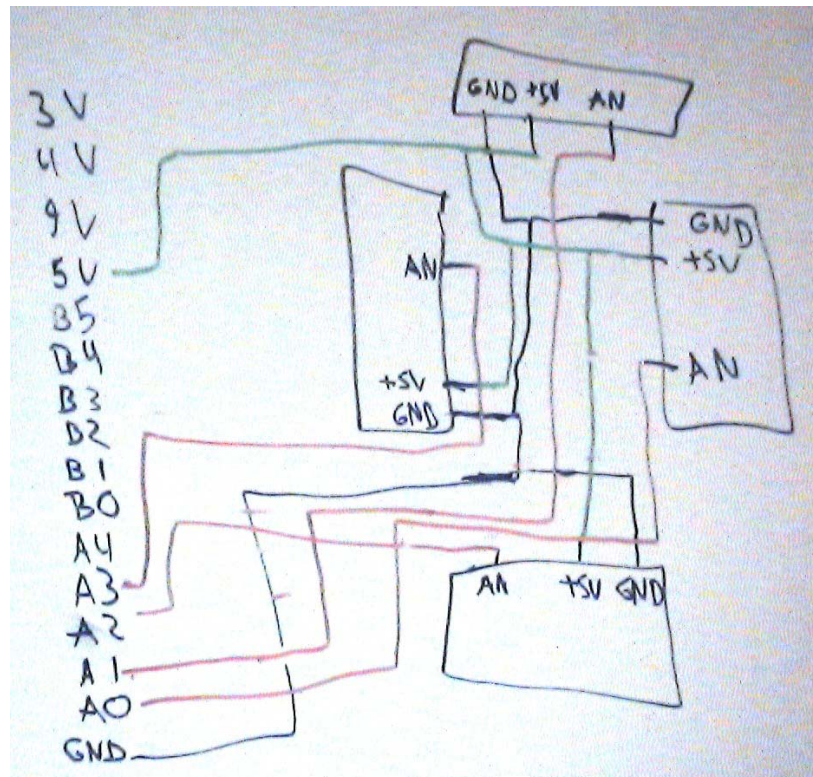 3V
4V
9V
5V
B5
B4
B3
B2
B1
B0
A4
A3
A2
A1
A0
GND
GND +5V AN
AN
+5V
GND
GND
+5V
AN
AN +5V GND